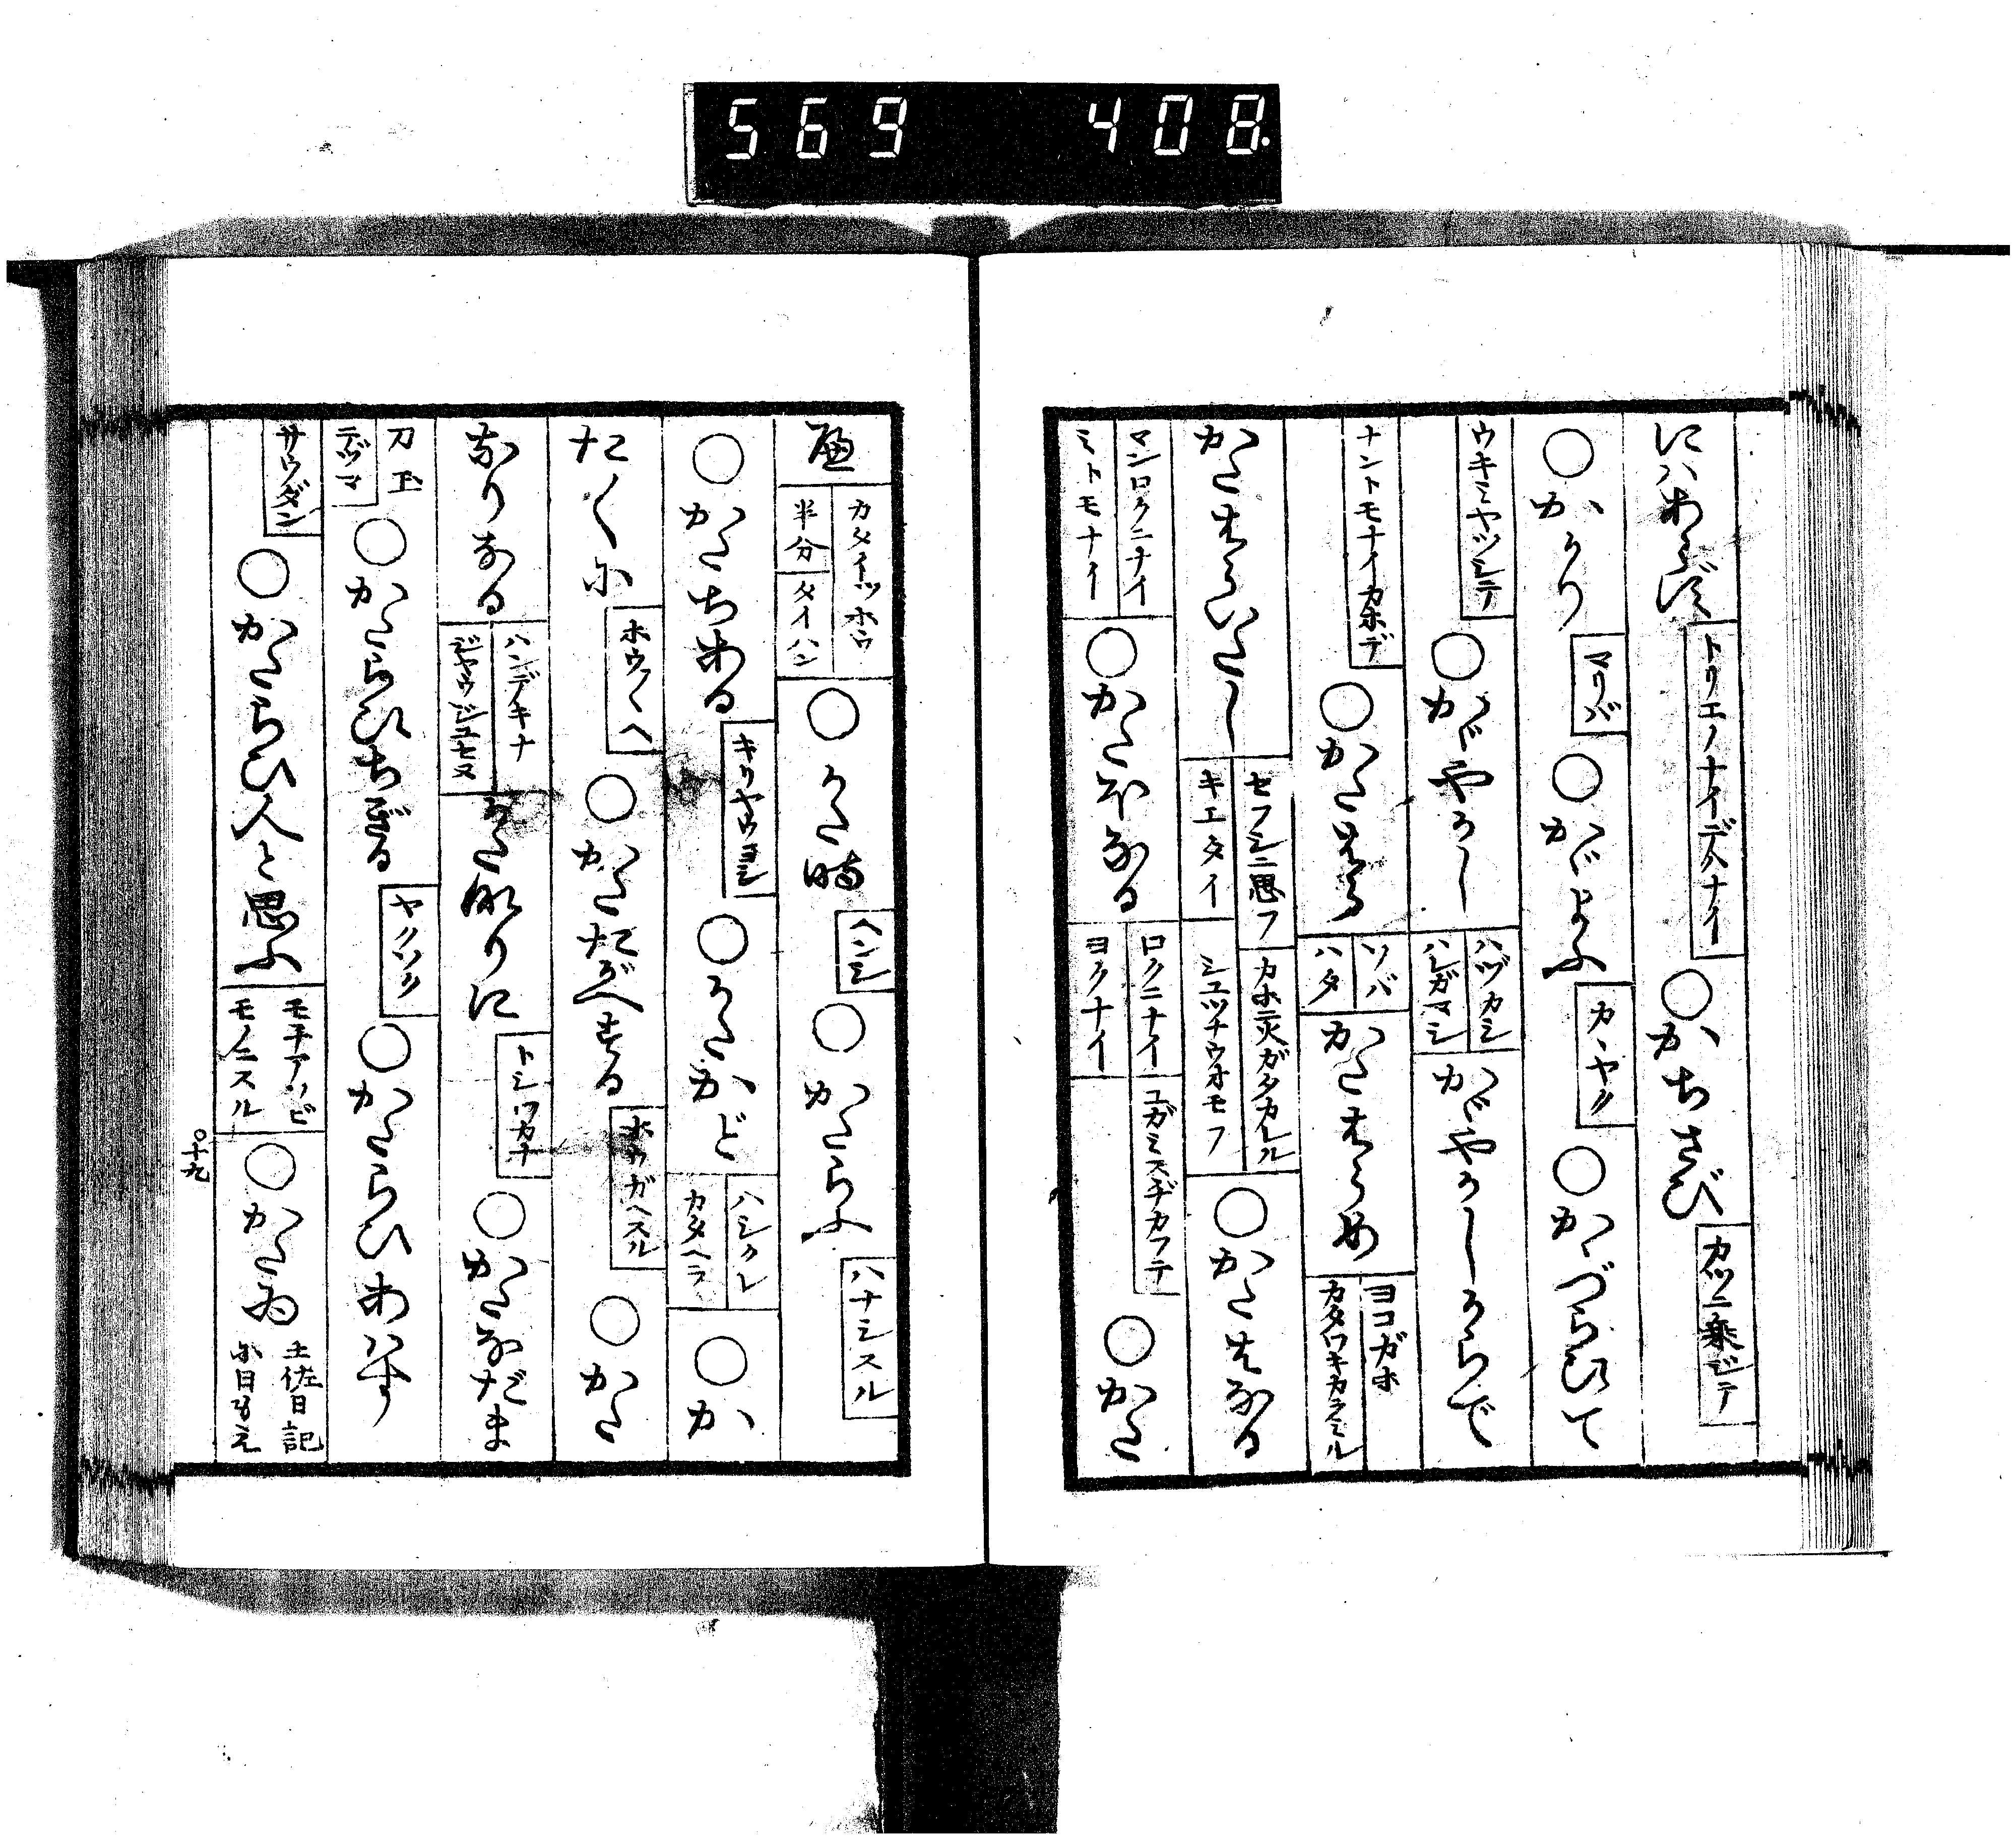 569 408
にハあらず トリエノナイデハナイ ○かちさび カツニ乗ジテ
○かゝり マリバ ○かゞよふ カヽヤク ○かゝづらひて
ウキミヤツシテ ○かゞやかし ハヅカシ ハレガマシ かゞやかしからで
ナントモナイカホデ ○かたはら ソバ ハタ かたはらめ ヨコガホ カタワキカラミル
かたはらいたし セフシニ思フ キエタイ カホニ火ガタカルル シユツナウオモフ ○かたはなる
マンロクニナイ ミトモナイ ○かたほなる ロクニナイ ヨクナイ ユガミスヂカフテ ○かた
遍 カタイツホウ 半分 タイハン ○かた時 ヘンシ ○かたらふ ハナシスル
○かたちある キリヤウヨシ ○かたかど ハシクレ カタヘラ ○か
たく〳〵に ホウ〳〵ヘ ○かたたがへする ホウガヘスル ○かた
なりなる ハンデキナ ジヤウジユセヌ かた成りに トシワカナ ○かたなだま
刀玉 テヅマ ○かたらひちぎる ヤクソク ○かたらひあハす
サウダン ○かたらひ人と思ふ モチアソビ モノニスル ○かたゐ 土佐日記に日もえ
○十九